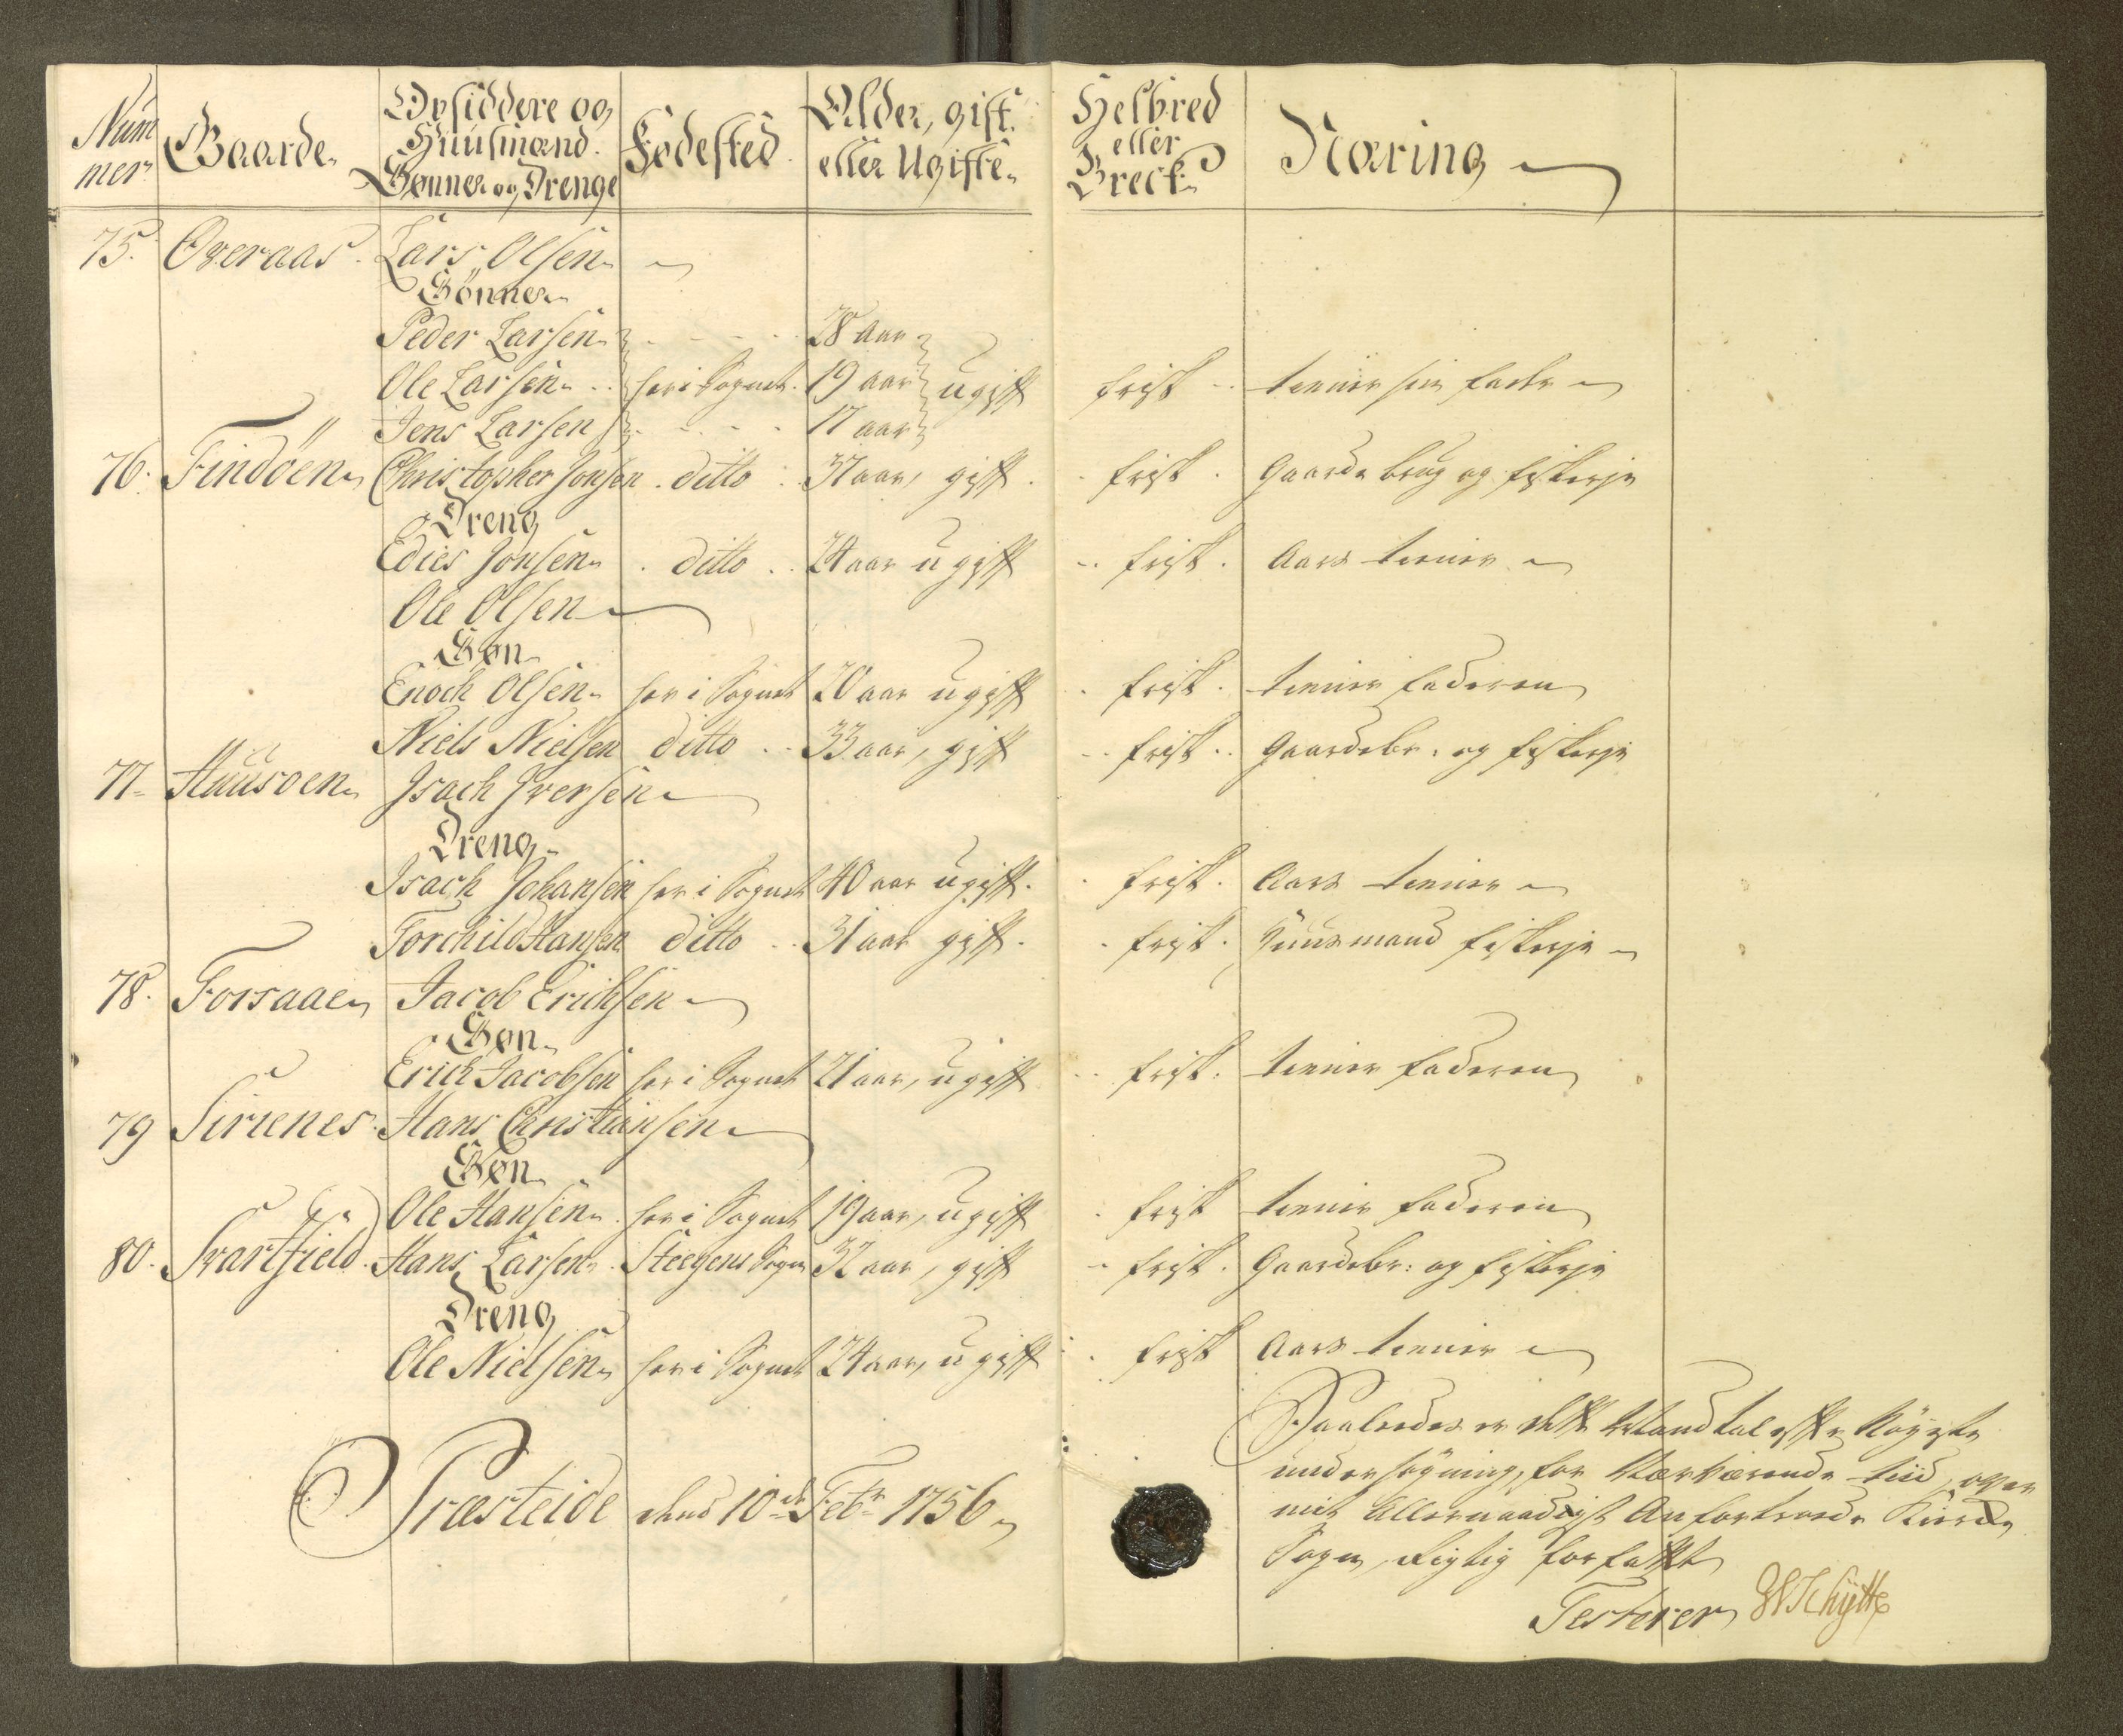 Num mer Gaarde Opsiddere og Huusmænd. Sønner og Drenge Fødested. Alder, gift eller Ugifte Helbred eller Breck Næring
75. Overaas. Lars Olsen
Sønner
Peder Larsen 28 aar
Ole Larsen her i Sognet. 19 aar ugift frisk tienner sin fader
Jens Larsen 17 aar
76. Findöen Christopher Jonsen. ditto 37 aar, gift. frisk. Gaarde brug og fiskerje
Dreng
Edies Jonsen. ditto 24 aar ugift frisk. Aars tienner
Ole Olsen
Søn
Enoch Olsen her i Sognet 20 aar ugift frisk. tienner faderen
Niels Nielsen ditto 33 aar, gift frisk. Gaardebr. og fiskerje
77 Huusoen Isach Iversen
Dreng
Isach Johansen her i Sognet 40 aar ugift. frisk. Aars tienner
Torchild Hansen ditto 31 aar gift. frisk. Huusmand fiskerje
78. Forsaae Jacob Erichsen
Søn
Erich Jacobsen her i Sognet 21 aar, ugift frisk. tienner faderen
79 Sirienes. Hans Christiansen
Søn
Ole Hansen her i Sognet 19 aar, ugift frisk tienner faderen
80. Svartfield. Hans Larsen Steegens Sogn 32 aar, gift frisk. Gaardebr: og fiskerje
Dreng
Ole Nielsen her i Sognet 24 aar, ugift frisk Aars tienner
Præsteide dend 10de Febr 1756
Saaledes er dette Mandtal efter Nøyeste
undersøgning, for Nærværende tiid, over
mit Allernaadigst Anfortroede
Sogn, Rigtig forfattet
Testerer Schytte